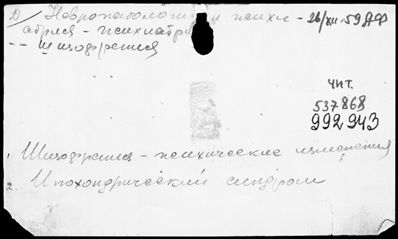 Д/ Невропатология и психи- 26/XII-59
атрия - психиатрия
-- Шизофрения
ЧИТ.
537868
992943
1. Шизофрения - психические изменения
2. Ипохондрический синдром